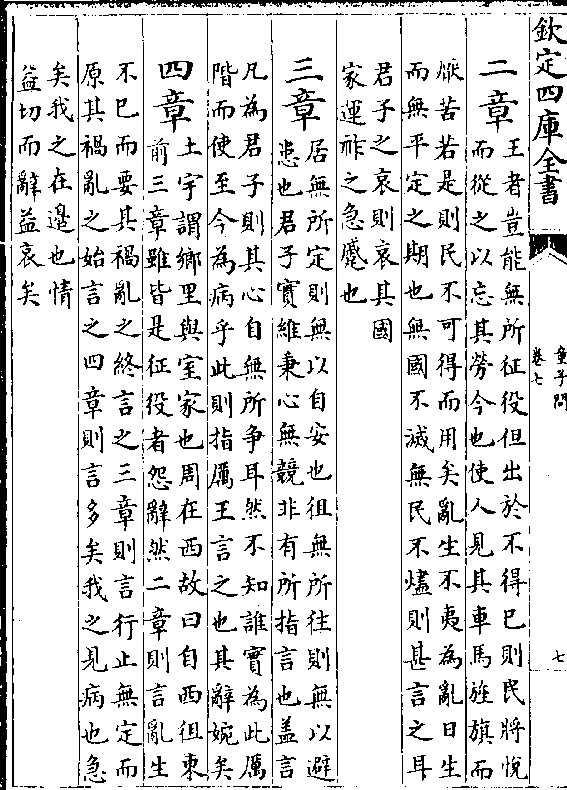 欽定四庫全書
童子問
卷七
七
二章
王者豈能無所征役但出於不得已則民將悅
而從之以忘其勞今也使人見其車馬旌旗而
厭苦若是則民不可得而用矣亂生不夷為亂日生
而無平定之期也無國不滅無民不燼則甚言之耳
君子之哀則哀其國
家運祚之急蹙也
三章
居無所定則無以自安也徂無所往則無以避
患也君子實維秉心無競非有所指言也蓋言
凡為君子則其心自無所爭耳然不知誰實為此厲
階而使至今為病乎此則指厲王言之也其辭婉矣
四章
土宇謂鄉里與室家也周在西故曰自西徂東
前三章雖皆是征役者怨辭然二章則言亂生
不已而要其禍亂之終言之三章則言行止無定而
原其禍亂之始言之四章則言多矣我之見病也急
矣我之在邊也情
益切而辭益哀矣